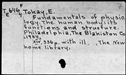 Tokay, E.
Fundamentals of physiology, the human body, its functions and structure.
Philadelphia, The Blakiston Co.
336p. with ill. (The New home library)